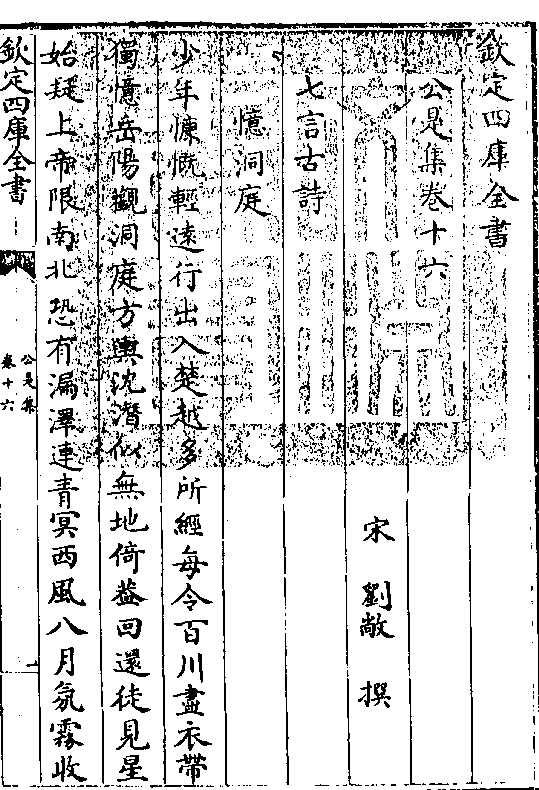 欽定四庫全書
公是集卷十六
宋 劉敞 撰
七言古詩
憶洞庭
少年慷慨輕遠行出入楚越多所經每令百川盡衣帶
獨憶岳陽觀洞庭方輿沈潛似無地倚葢回還徒見星
始疑上帝限南北恐有漏澤連青冥西風八月氛霧收
欽定四庫全書
公是集
卷十六
一